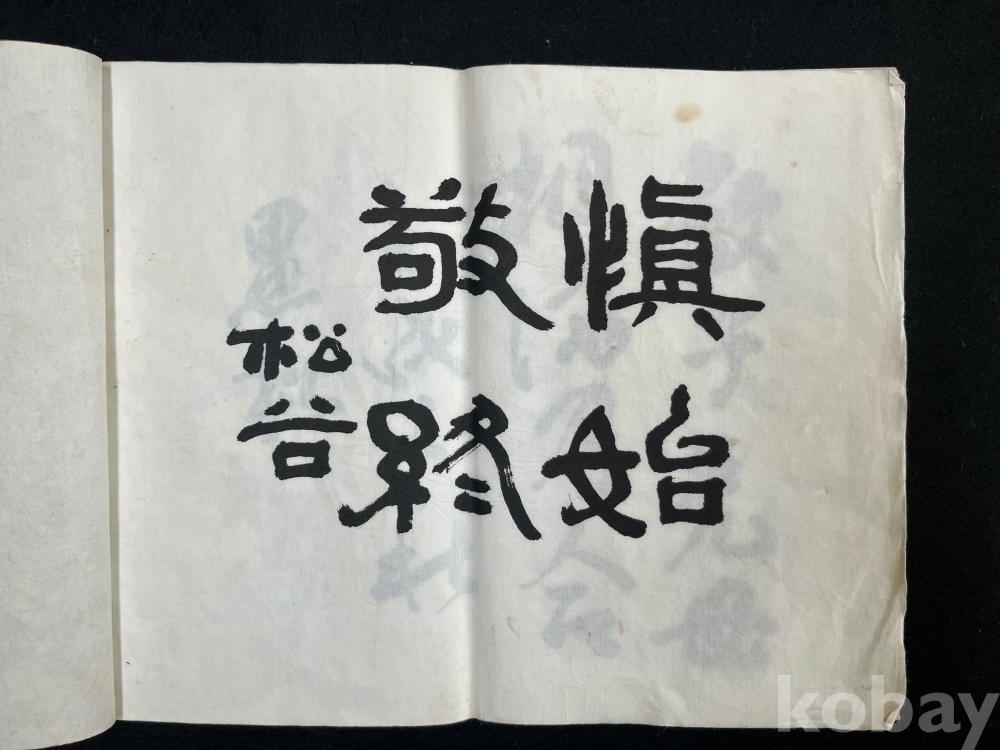 慎始
敬終
松谷
kobay